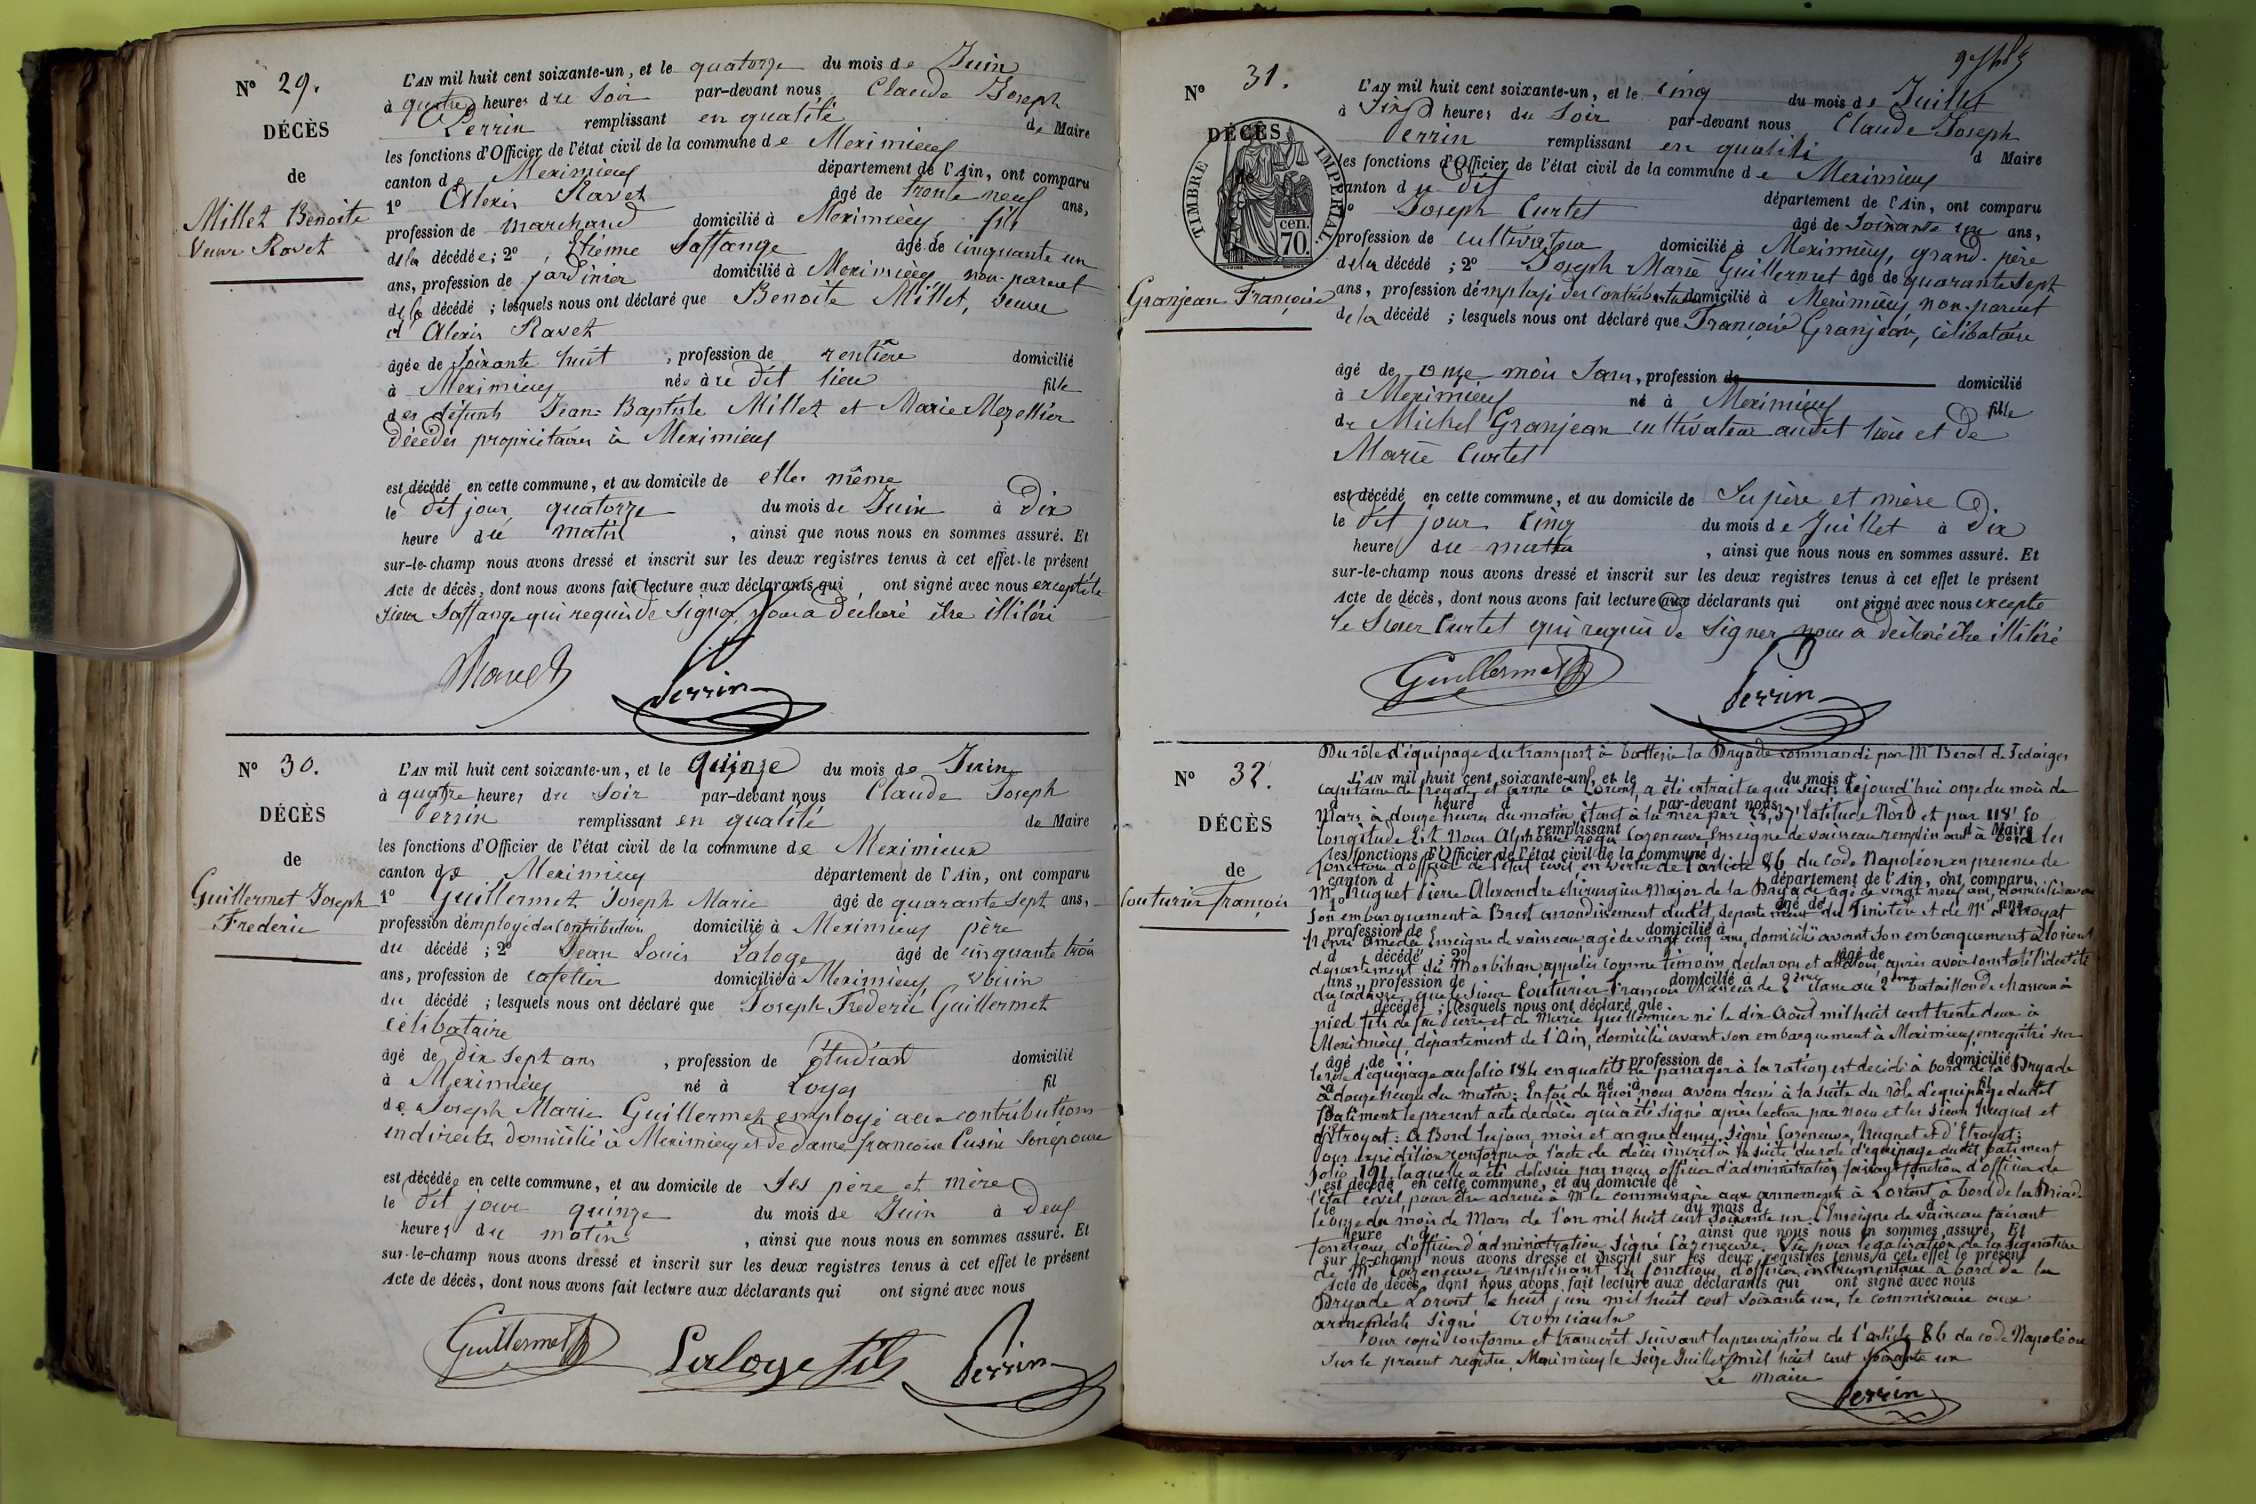 N° 29.
DÉCÈS
de
Millet Benoite
Veuve Ravet
L'AN mil huit cent soixante-un, et le quatorze du mois de Juin
à quatre heures du Soir par-devant nous Claude Joseph
Perrin remplissant en qualité de Maire
les fonctions d'Officier de l'état civil de la commune de Meximieux
canton de Meximieux département de l'Ain, ont comparu
1° Alexis Ravet âgé de trente neuf ans,
profession de marchand domicilié à Meximieux fils
de la décédée; 2° Etienne Saffange âgé de cinquante un
ans, profession de jardinier domicilié à Meximieux non-parent
de la décédé ; lesquels nous ont déclaré que Benoite Millet, veuve
d'Alexis Ravet
âgée de Soixante huit , profession de rentière domicilié
à Meximieux née à ce dit lieu fille
des défunts Jean-Baptiste Millet et Marie Mezellier
décédés propriétaires à Meximieux
est décédé en cette commune, et au domicile de elle même
le dit jour quatorze du mois de Juin à Dix
heure du matin , ainsi que nous nous en sommes assuré. Et
sur-le-champ nous avons dressé et inscrit sur les deux registres tenus à cet effet le présent
Acte de décès, dont nous avons fait lecture aux déclarants qui ont signé avec nous excepté le
sieur Saffange qui requis de signer, nous a déclaré être illitéré
Ravet Perrin
N° 30.
DÉCÈS
de
Guillermet Joseph
Frederic
L'AN mil huit cent soixante-un, et le quinze du mois de Juin
à quatre heures du Soir par-devant nous Claude Joseph
Perrin remplissant en qualité de Maire
les fonctions d'Officier de l'état civil de la commune de Meximieux
canton de Meximieux département de l'Ain, ont comparu
1° Guillermet Joseph Marie âgé de quarante sept ans,
profession d'employé des Contributions domicilié à Meximieux père
du décédé ; 2° Jean Louis Laloge âgé de cinquante trois
ans, profession de cafetier domicilié à Meximieux voisin
du décédé ; lesquels nous ont déclaré que Joseph Frederic Guillermet
célibataire
âgé de dix sept ans , profession de étudiant domicilié
à Meximieux né à Loyes fil
de Joseph Marie Guillermet employé aux contributions
indirectes domicilié à Meximieux et de dame françoise Cusin son épouse
est décédé en cette commune, et au domicile de Ses père et mère
le dit jour quinze du mois de Juin à deux
heures du matin , ainsi que nous nous en sommes assuré. Et
sur-le-champ nous avons dressé et inscrit sur les deux registres tenus à cet effet le présent
Acte de décès, dont nous avons fait lecture aux déclarants qui ont signé avec nous
Guillermet Laloge fils Perrin
N° 31.
DÉCÈS
de
TIMBRE IMPERIAL
cen. 70.
Granjean Françoise
L'AN mil huit cent soixante-un, et le cinq du mois de Juillet
à Six heures du Soir par-devant nous Claude Joseph
Perrin remplissant en qualité d Maire
les fonctions d'Officier de l'état civil de la commune de Meximieux
canton du dit département de l'Ain, ont comparu
1° Joseph Curtet âgé de Soixante un ans,
profession de cultivateur domicilié à Meximieux, grand-père
de la décédé ; 2° Joseph Marie Guillermet âgé de quarante sept
ans, profession d'employé des Contributions domicilié à Meximieux non-parent
de la décédé ; lesquels nous ont déclaré que Françoise Granjean, célibataire
âgé de onze mois Jours, profession de domicilié
à Meximieux né à Meximieux fille
de Michel Granjean cultivateur audit lieu et de
Marie Curtet
est décédé en cette commune, et au domicile de Ses père et mère
le dit jour Cinq du mois de Juillet à Dix
heures du matin , ainsi que nous nous en sommes assuré. Et
sur-le-champ nous avons dressé et inscrit sur les deux registres tenus à cet effet le présent
Acte de décès, dont nous avons fait lecture aux déclarants qui ont signé avec nous excepté
le Sieur Curtet qui requis de signer nous a déclaré être illitéré
Guillermet Perrin
N° 32.
DÉCÈS
de
Couturier François
Du rôle d'équipage du transport à batterie la Dryade commandé par Mr
capitaine de frégate et armé à Lorient, a été extrait ce qui suit: Cejourd'hui onze du mois de
Mars à douze heures du matin étant à la mer par latitude Nord et par
longitude Est Nous Alphonse Cazeneuve Enseigne de vaisseau remplissant à bord les
fonctions d'officier de l'état civil, en vertu de l'article 86 du Code Napoléon en presence de
Mr Huguet Pierre Alexandre chirurgien Major de la Dryade agé de vingt neuf ans, domicilié avant
Son embarquement à Brest arrondissement dudit, departement du Finistère et de Mr d'Etroyat
Henri Amedée Enseigne de vaisseau, agé de vingt cinq ans, domicilié avant Son embarquement à Lorient
departement du Morbihan, appelés comme témoins, declarons et attestons après avoir constaté l'identité
du cadavre, que le Sieur Couturier François Chasseur de 2eme classe au bataillon de chasseurs à
pied fils de feu Pierre et de Marie Guillermier né le dix Août mil huit cent trente deux à
Meximieux, département de l'Ain, domicilié avant son embarquement à Meximieux, enregistré sur
le rôle d'équipage au folio 184 en qualité de passager à la ration est decédé à bord de la Dryade
à douze heures du matin: En foi de quoi nous avons dressé à la suite du rôle d'equipage dudit
Batiment le present acte de décès qui a été signé après lecture par nous et les sieurs Huguet et
d'Etroyat: A Bord les jour, mois et an que dessus. Signé Cazeneuve, Huguet et d'Etroyat:
Pour expédition conforme à l'acte de décès inscrit à la suite du role d'équipage dudit batiment
folio 191 laquelle a été delivrée par nous officier d'administration faisant fonction d'officier de
l'état civil, pour être adressée à Mr le commissaire aux armements à Lorient, à bord de la Driade
le onze du mois de Mars de l'an mil huit cent Soixante un. L'Enseigne de vaisseau faisant
fonctions d'officier d'administration Signé Cazeneuve. Vu pour légalisation de la signature
de Mr Cazeneuve remplissant les fonctions d'officier instrumentaire à bord de la
Dryade Lorient le huit juin mil huit cent Soixante un, le commissaire aux
armements Signé
Pour copie conforme et transcrit suivant la prescription de l'article 86 du code Napoléon
Sur le present registre, Meximieux le Seize Juillet mil huit cent Soixante un
Le maire
Perrin